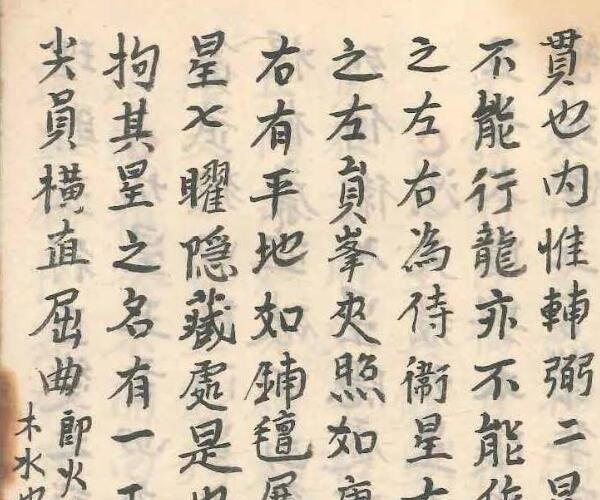 貫也内惟輔弼二星
不能行龍亦不能作
之左右為侍衛星
之左員峯夾照如
右有平地如鋪氊展
星七曜隠藏處是也
拘其星之名有一
尖員橫直屈曲即火
木水也